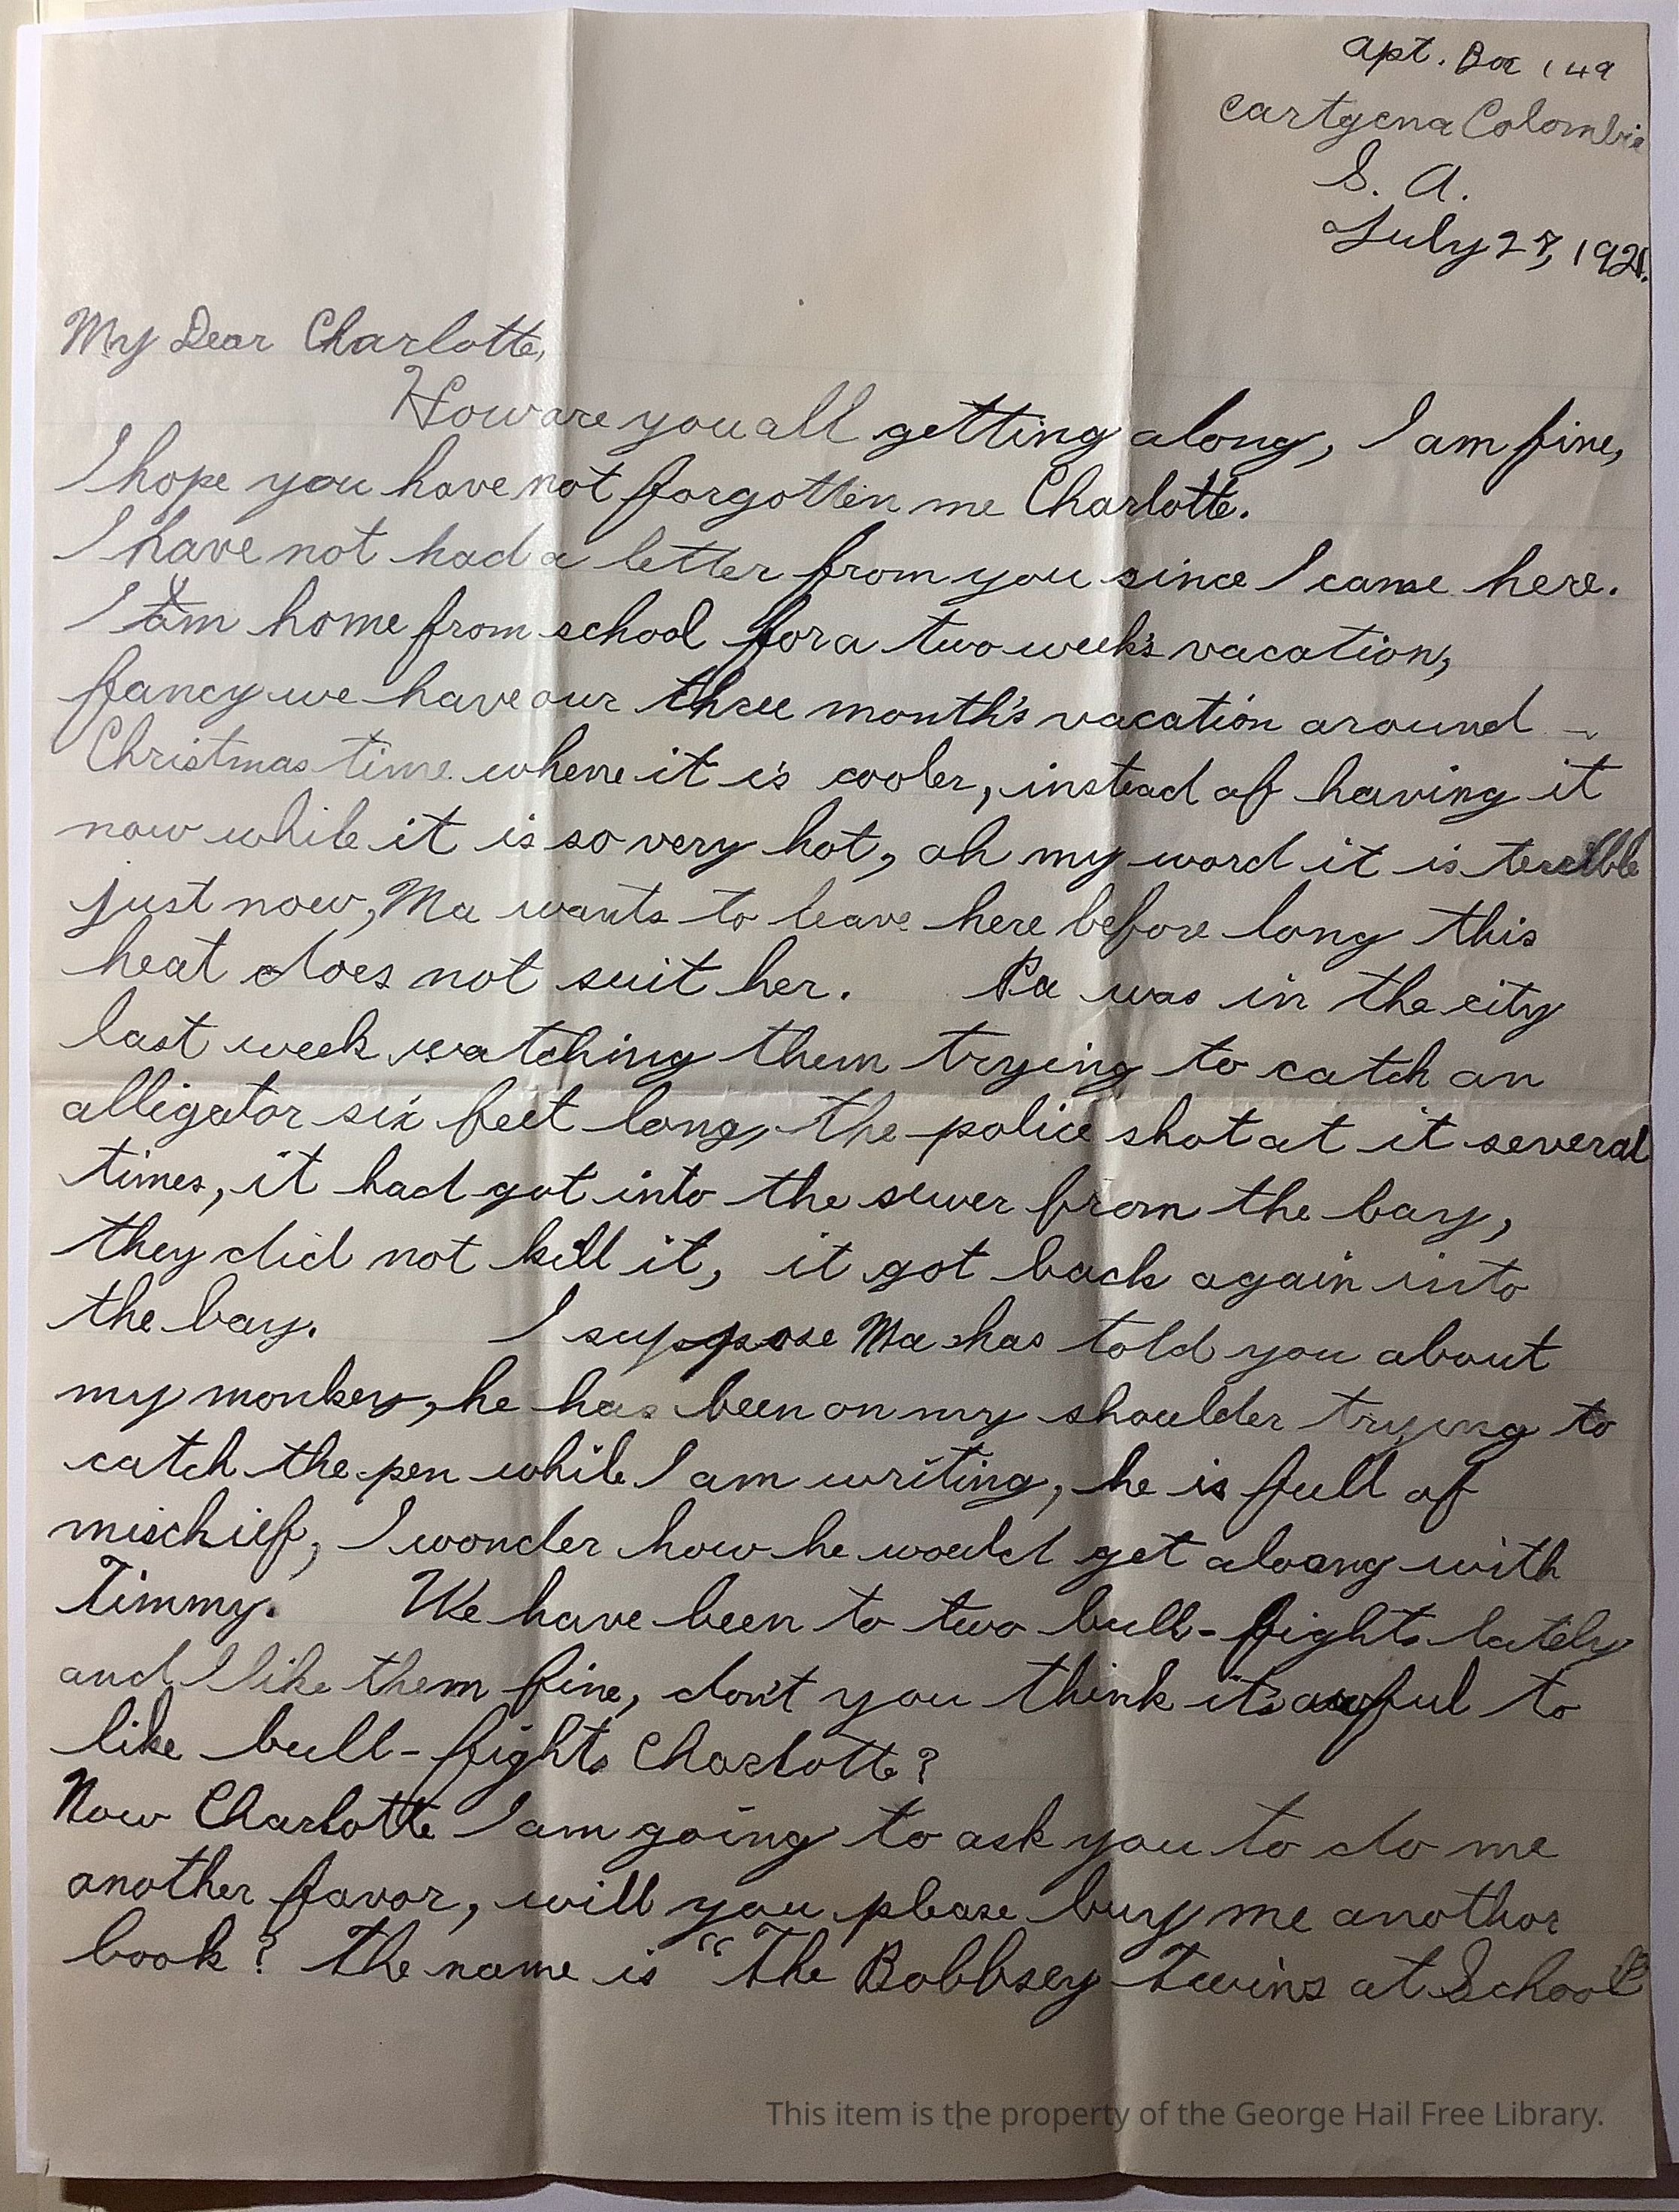 apt. Box 149
Cartgena Colombia
S. A.
July 27, 1921.
My Dear Charlotte,
How are you all getting along, I am fine,
I hope you have not forgotten me Charlotte.
I have not had a letter from you since I came here.
I am home from school for a two week's vacation,
fancy we have our three month's vacation around
Christmas time where it is cooler, instead of having it
now while it is so very hot, oh my word it is terrible
just now, Ma wants to leave here before long this
heat does not suit her. Pa was in the city
last week watching them trying to catch an
alligator six feet long, the police shot at it several
times, it had got into the sewer from the bay,
they did not kill it, it got back again into
the bay. I suppose Ma has told you about
my monkey, he has been on my shoulder trying to
catch the pen while I am writing, he is full of
mischief, I wonder how he would get aloong with
Timmy. We have been to two bull-fights lately
and I like them fine, don't you think it's awful to
like bull-fights Charlotte?
Now Charlotte I am going to ask you to do me
another favor, will you please buy me another
book? The name is "The Bobbsey Twins at School"
This item is the property of the George Hail Free Library.